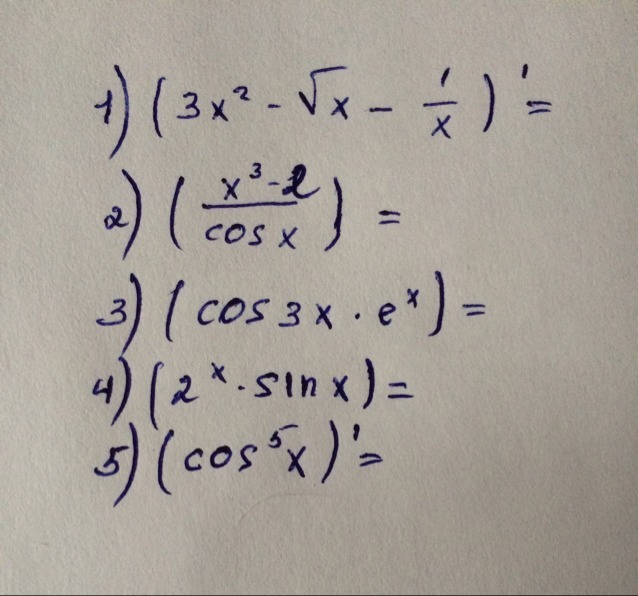 1) (3x² - √x - 1/x)' =
2) (x³-2/cos x) =
3) (cos 3x · eˣ) =
4) (2ˣ · sin x) =
5) (cos⁵x)' =